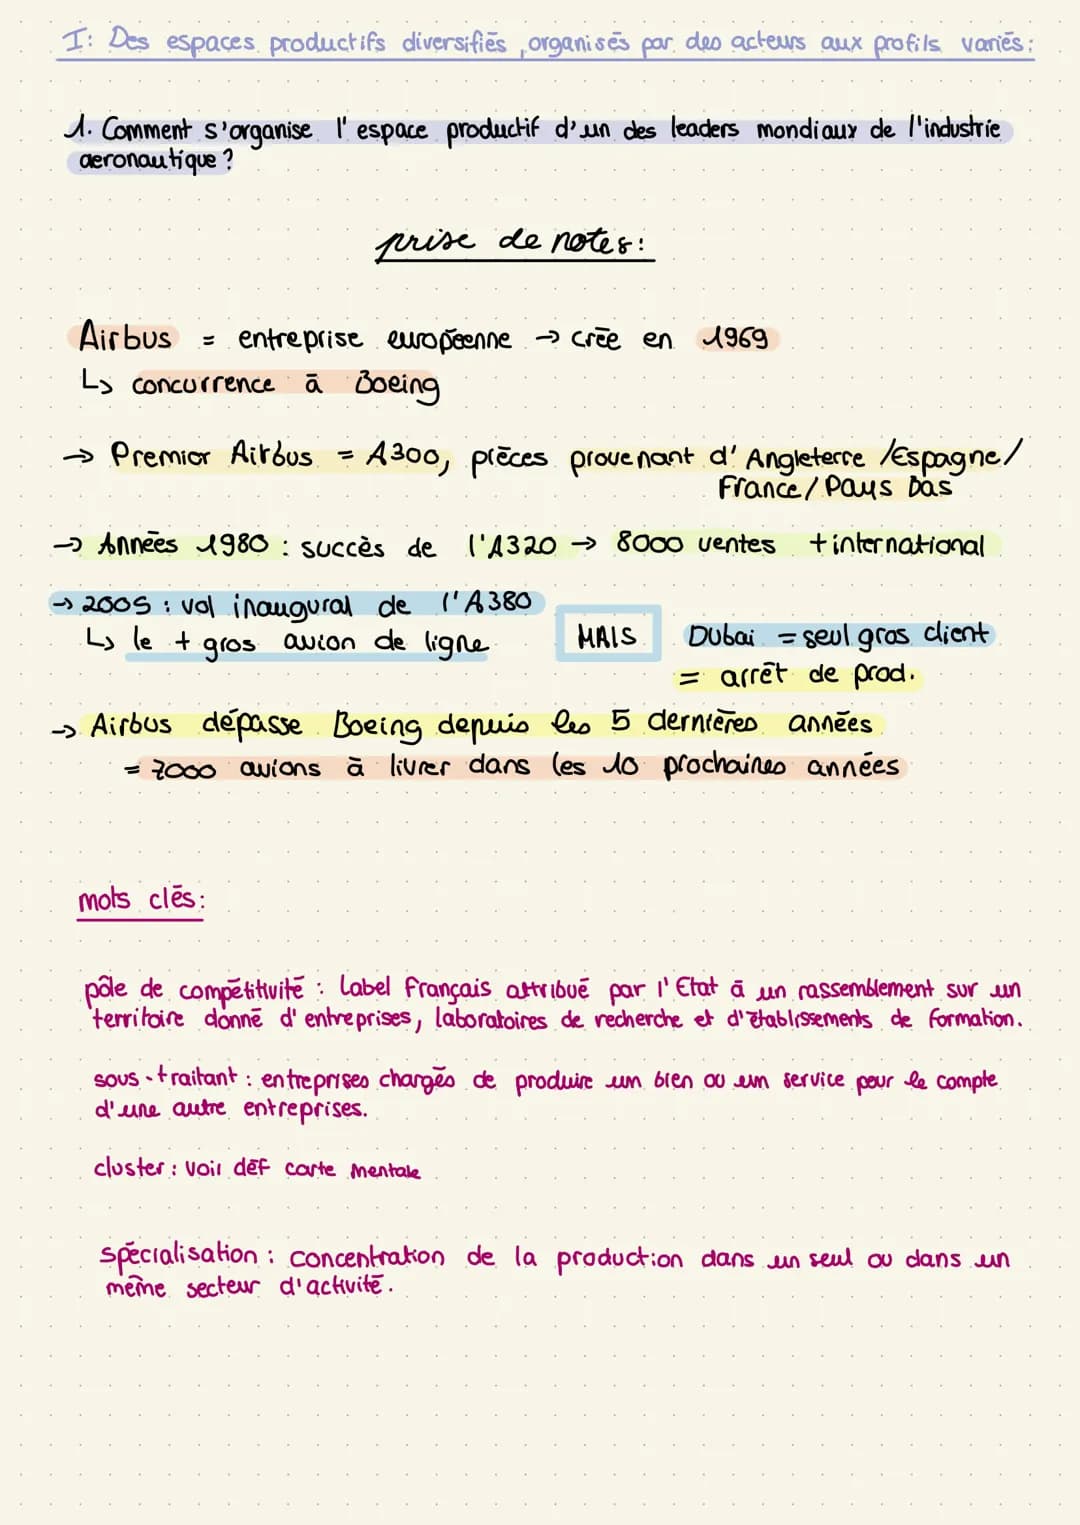 I: Des espaces productifs diversifiés, organisés par des acteurs aux profils variés:
1. Comment s'organise l'espace productif d'un des leaders mondiaux de l'industrie
aeronautique ?
prise de notes:
Airbus = entreprise européenne → crée en 1969
↳ concurrence à Boeing
→ Premier Airbus = A300, pièces provenant d'Angleterre /Espagne/
France/Pays Bas
→ Années 1980 : succès de l'A320 → 8000 ventes + international
→ 2005 : vol inaugural de l'A380
↳ le + gros avion de ligne MAIS Dubai = seul gros client
= arrêt de prod.
→ Airbus dépasse Boeing depuis les 5 dernières années
= 7000 avions à livrer dans les 10 prochaines années
mots clés:
pôle de compétitivité : Label Français attribué par l'Etat à un rassemblement sur un
territoire donné d'entreprises, laboratoires de recherche et d'établissements de formation.
sous-traitant : entreprises chargés de produire un bien ou un service pour le compte
d'une autre entreprises.
cluster : voir déf carte mentale
Spécialisation : concentration de la production dans un seul ou dans un
même secteur d'activité.